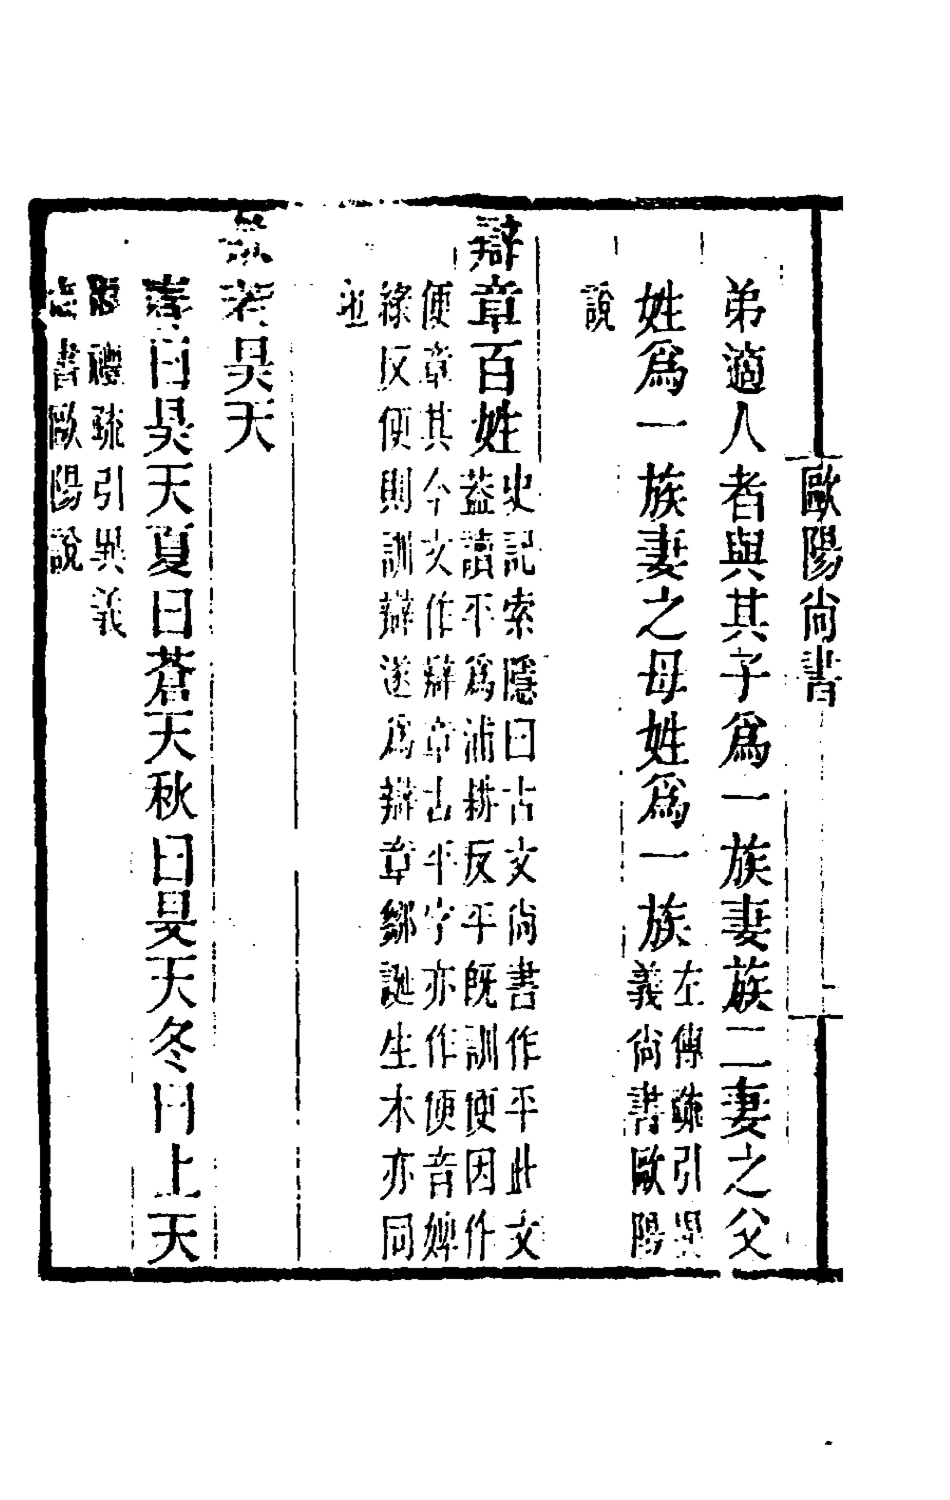 歐陽尚書
一
弟適人者與其子爲一族妻族二妻之父
姓爲一族妻之母姓爲一族
左傳疏引異
義尚書歐陽
說
辯章百姓
史記索隱曰古文尚書作平此文
蓋讀平爲浦耕反平旣訓便因作
便章其今文作辯章古平字亦作便音婢
緣反便則訓辯遂爲辯章鄒誕生本亦同
也
欽若昊天
春曰昊天夏曰蒼天秋曰旻天冬曰上天
周禮疏引異義
尚書歐陽說